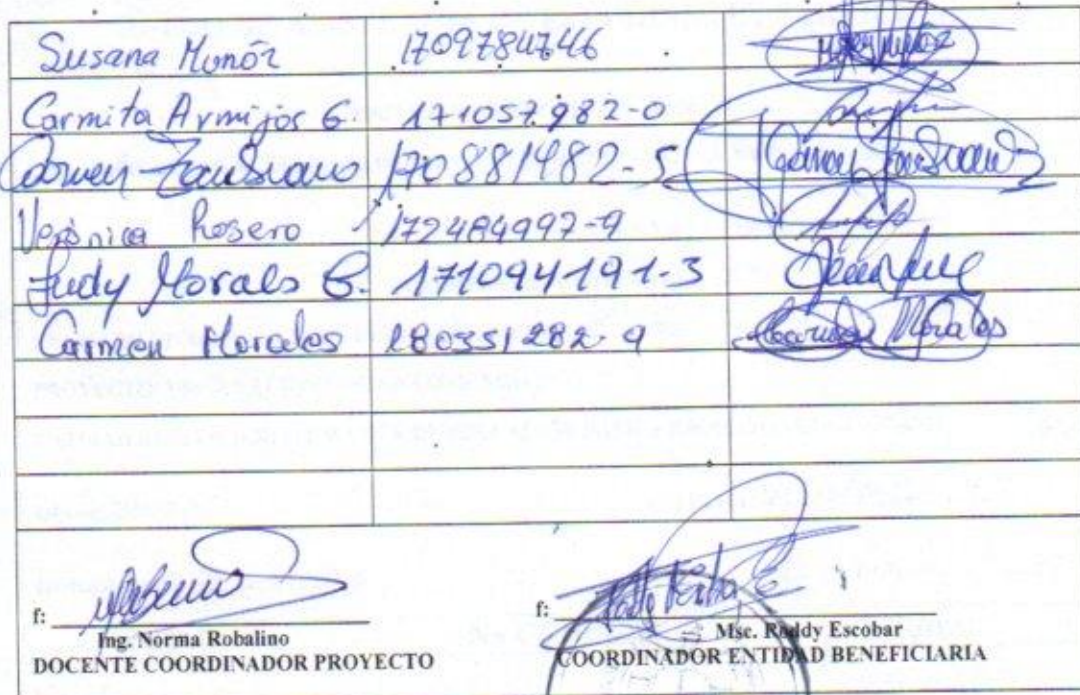 Susana Munóz 1709784746
Carmita Armijos G. 171057982-0
Carmen Zambrano 170881482-5
Verónica Rosero 172484997-9
Judy Morales G. 171094191-3
Carmen Morales 180351282-9 Carmen Morales
f: f:
Ing. Norma Robalino Msc. Roddy Escobar
DOCENTE COORDINADOR PROYECTO COORDINADOR ENTIDAD BENEFICIARIA